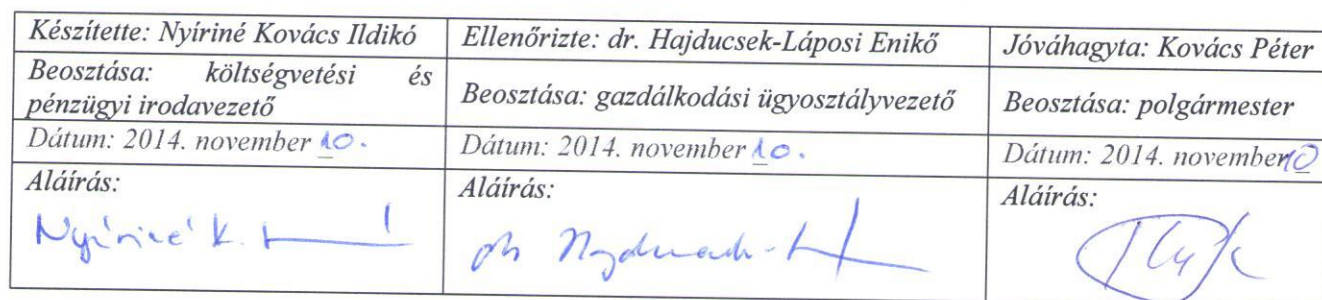 Készítette: Nyíriné Kovács Ildikó
Ellenőrizte: dr. Hajducsek-Láposi Enikő
Jóváhagyta: Kovács Péter
Beosztása: költségvetési és
pénzügyi irodavezető
Beosztása: gazdálkodási ügyosztályvezető
Beosztása: polgármester
Dátum: 2014. november 10.
Dátum: 2014. november 10.
Dátum: 2014. november 10
Aláírás:
Nyíriné K.
Aláírás:
Aláírás: